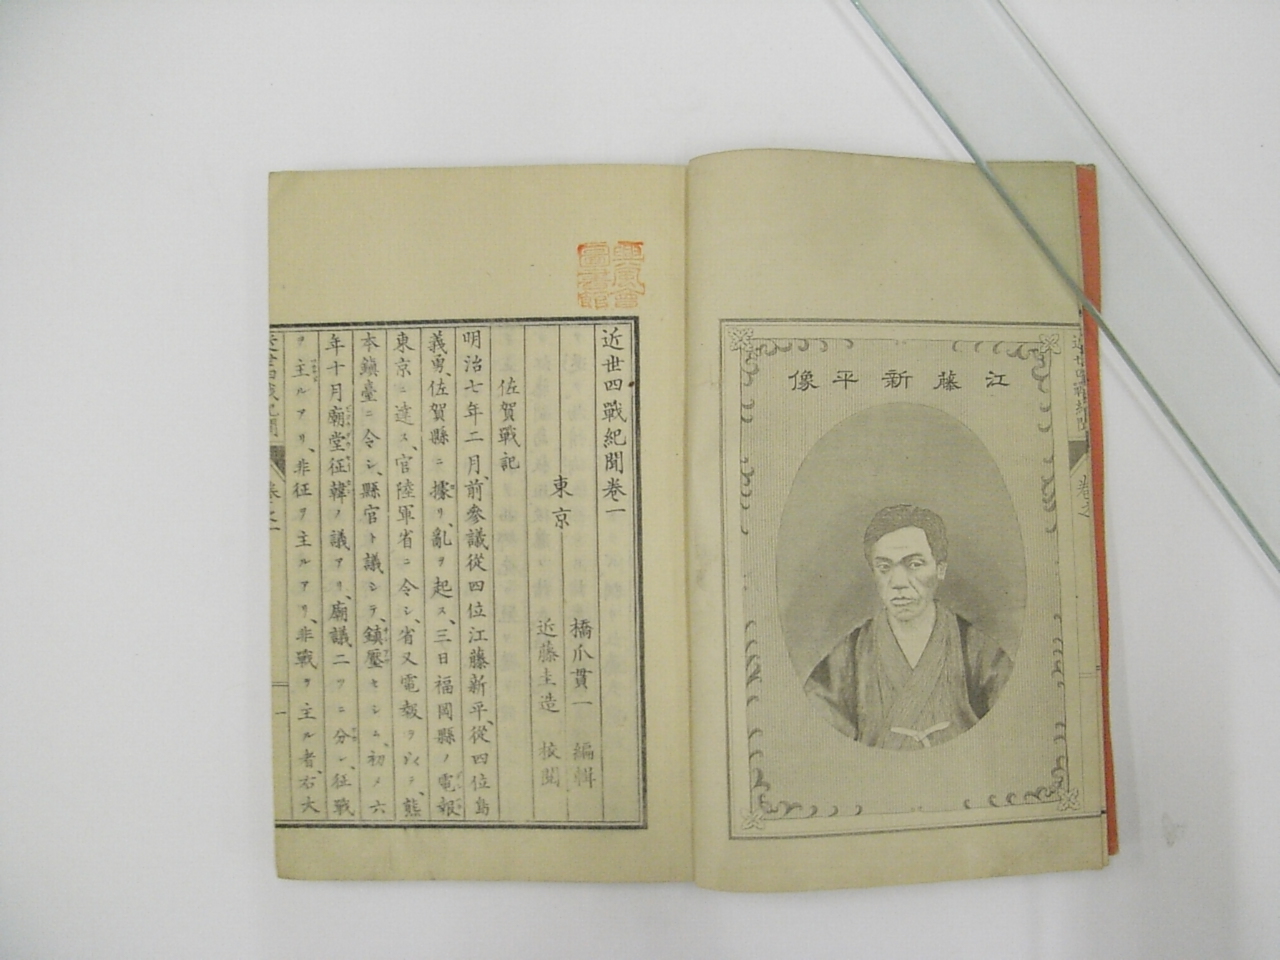 江藤新平像
興風會
圖書館
近世四戰紀聞卷一
東京
橋爪貫一 編輯
近藤圭造 校閲
佐賀戰記
明治七年二月、前參議從四位江藤新平、從四位島
義勇、佐賀縣ニ據リ、亂ヲ起ス、三日福岡縣ノ電報
東京ニ達ス、官陸軍省ニ令シ、省又電報ヲ以テ、熊
本鎮臺ニ令シ、縣官ト議シテ、鎮壓セシム、初メ六
年十月廟堂征韓ノ議アリ、廟議二ツニ分レ、征戰
ヲ主ルアリ、非征ヲ主ルアリ、非戰ヲ主ル者、右大